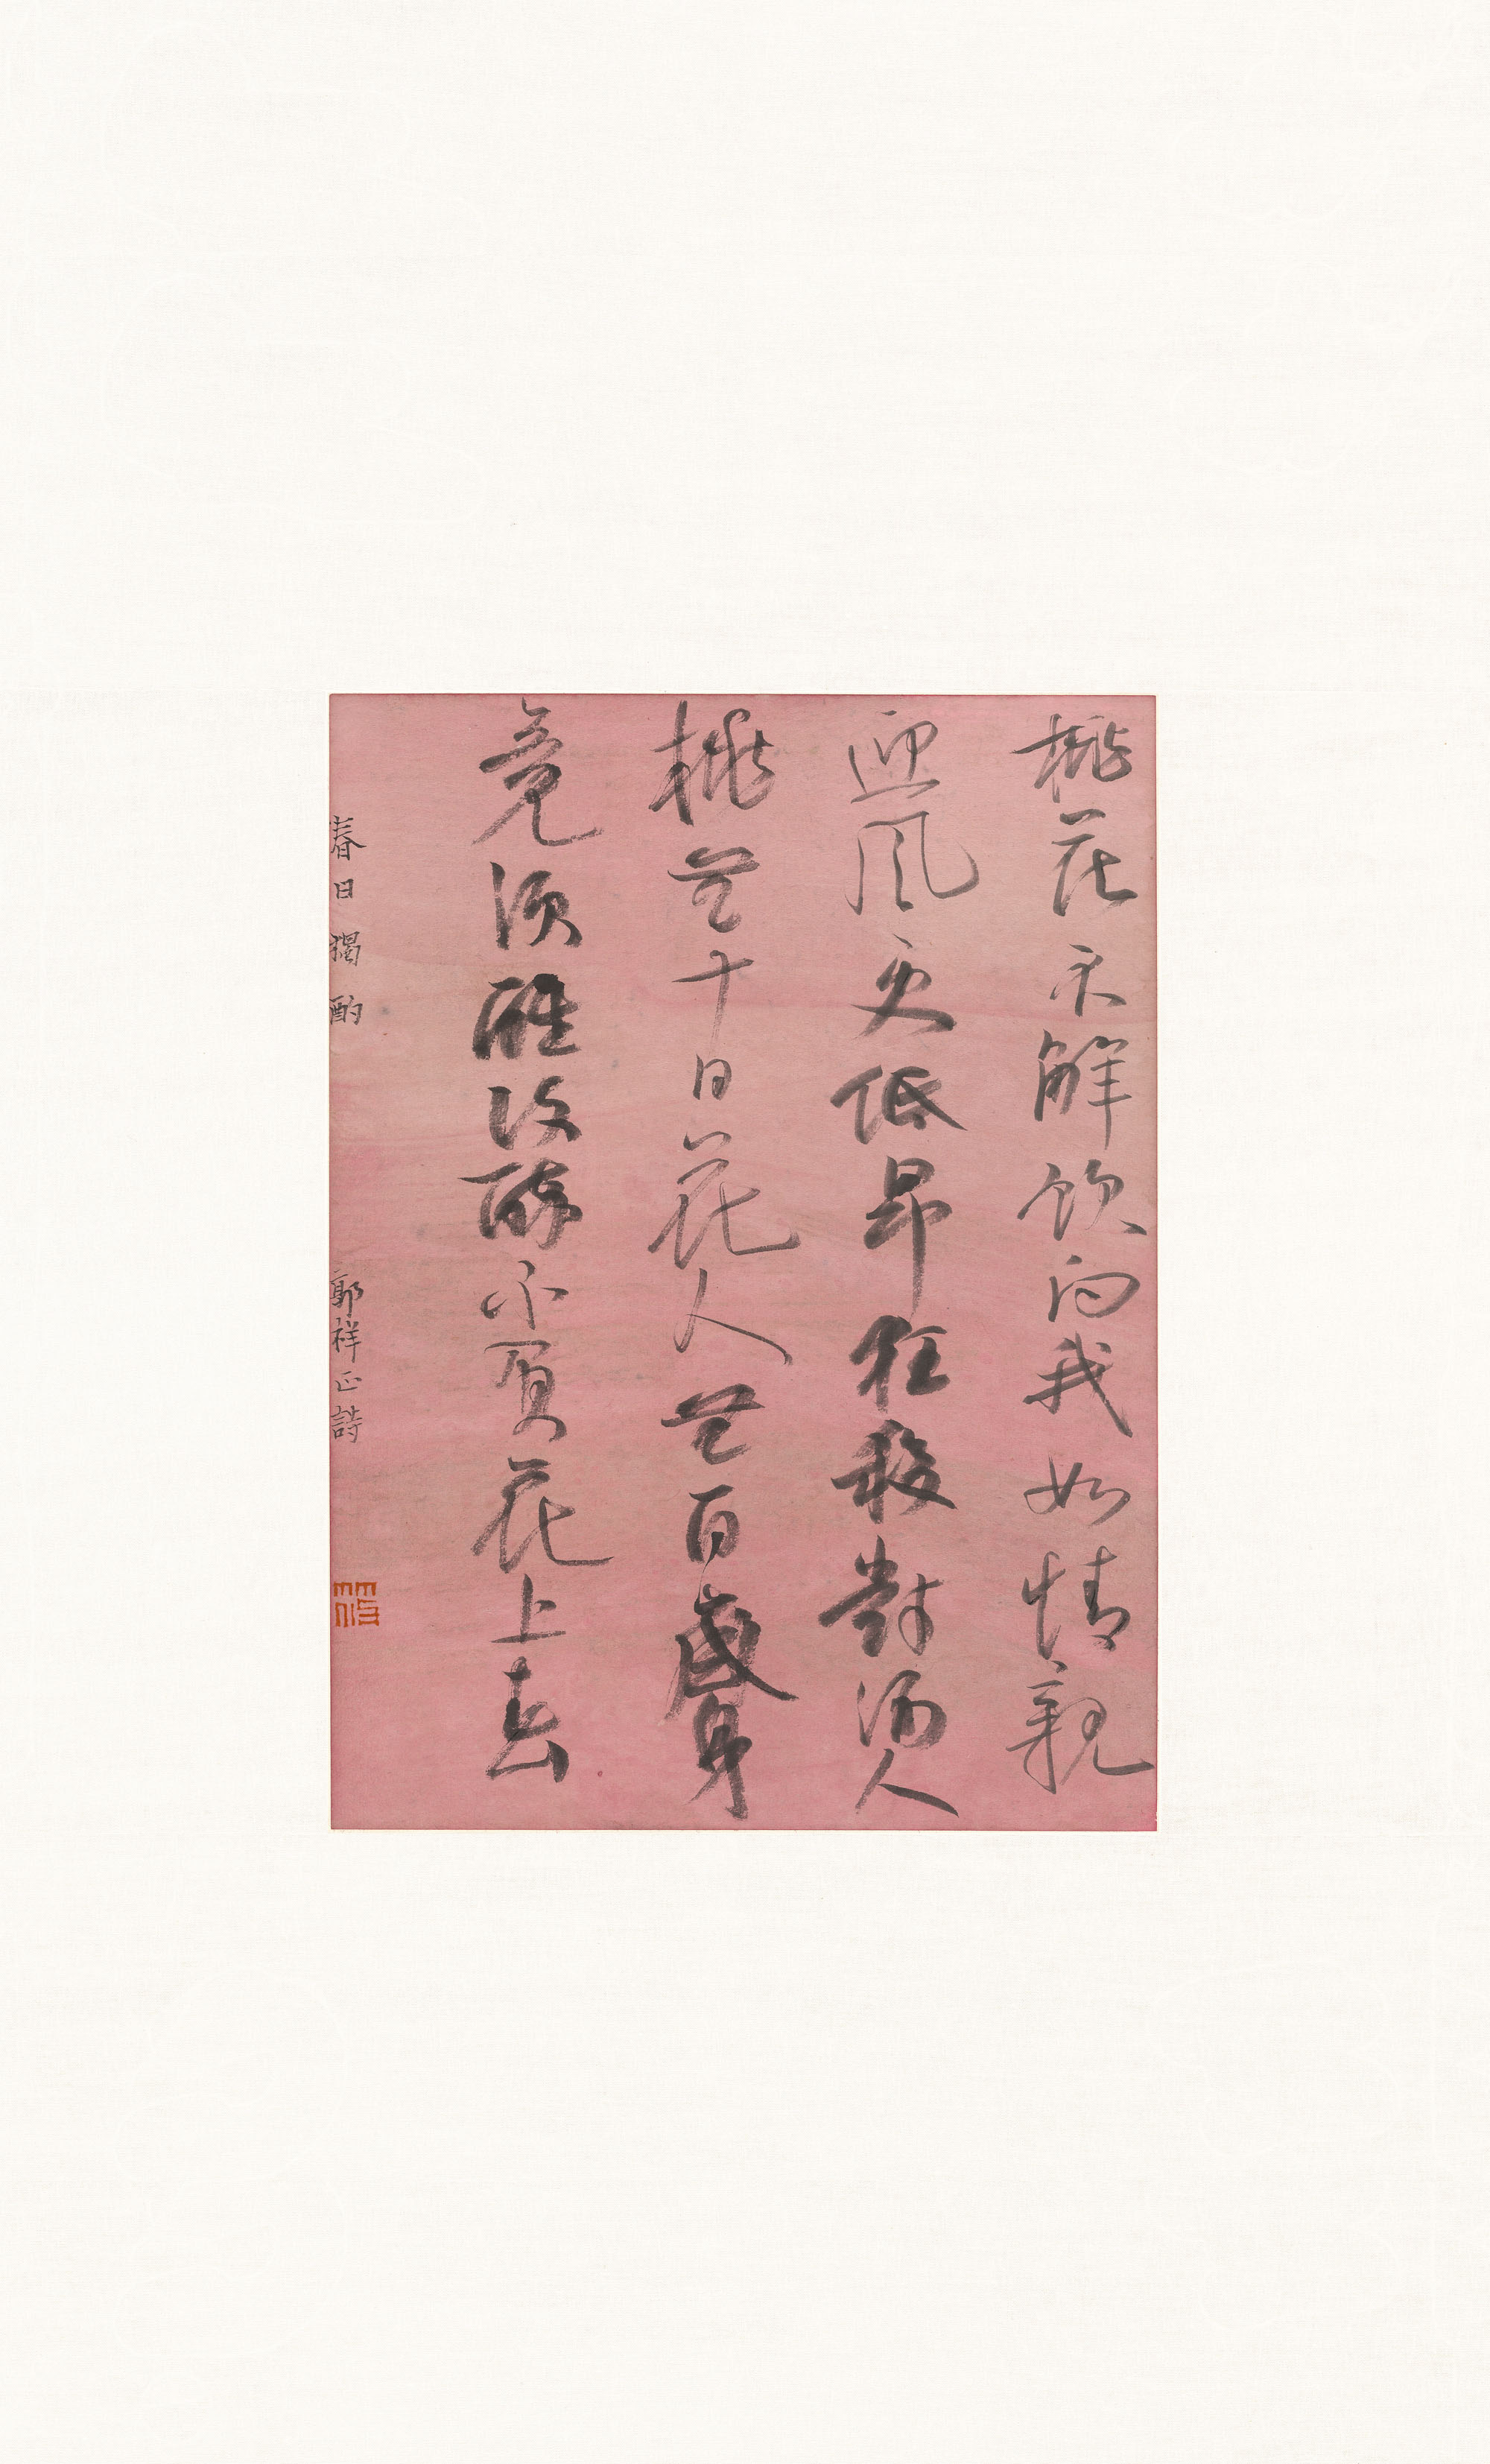 桃花不解飲向我如情親
迎風更低昂狂殺對酒人
桃無十日花人無百歲身
竟須醒復醉不負花上春
春日獨酌 郭祥正詩